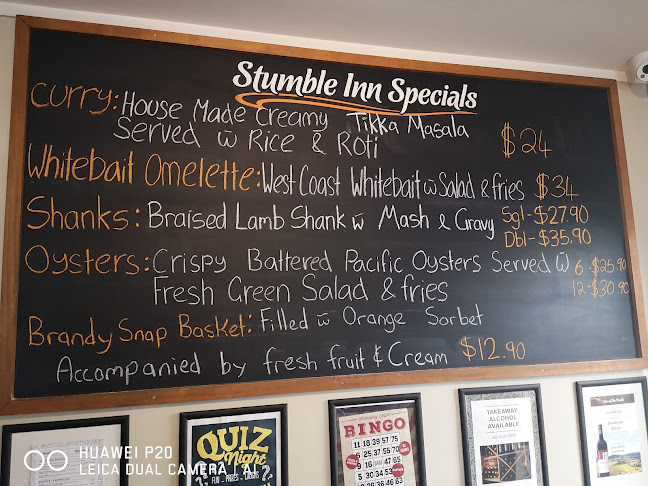 Stumble Inn Specials
Curry: House Made Creamy Tikka Masala
Served w̄ Rice & Roti $24
Whitebait Omelette: West Coast Whitebait w̄ Salad & fries $34
Shanks: Braised Lamb Shank w̄ Mash & Gravy Sgl-$27.90
Dbl-$35.90
Oysters: Crispy Battered Pacific Oysters Served w̄ 6-$25.90
Fresh Green Salad & fries 12-$30.90
Brandy Snap Basket: Filled w̄ Orange Sorbet
Accompanied by fresh fruit & Cream $12.90
QUIZ
Night
FUN
BINGO
11 18 39 57 75
TAKEAWAY
ALCOHOL
AVAILABLE
HUAWEI P20
LEICA DUAL CAMERA | AI